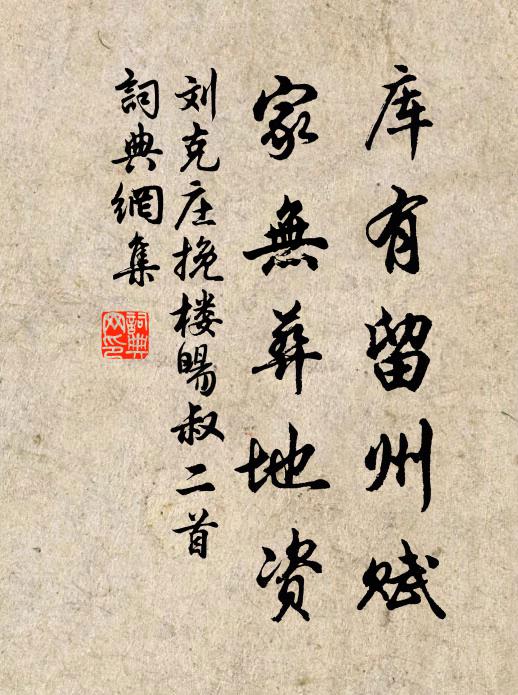 库有留州赋
家無葬地资
刘克庄挽楼暘叔二首
詞典網集
詞典
网印